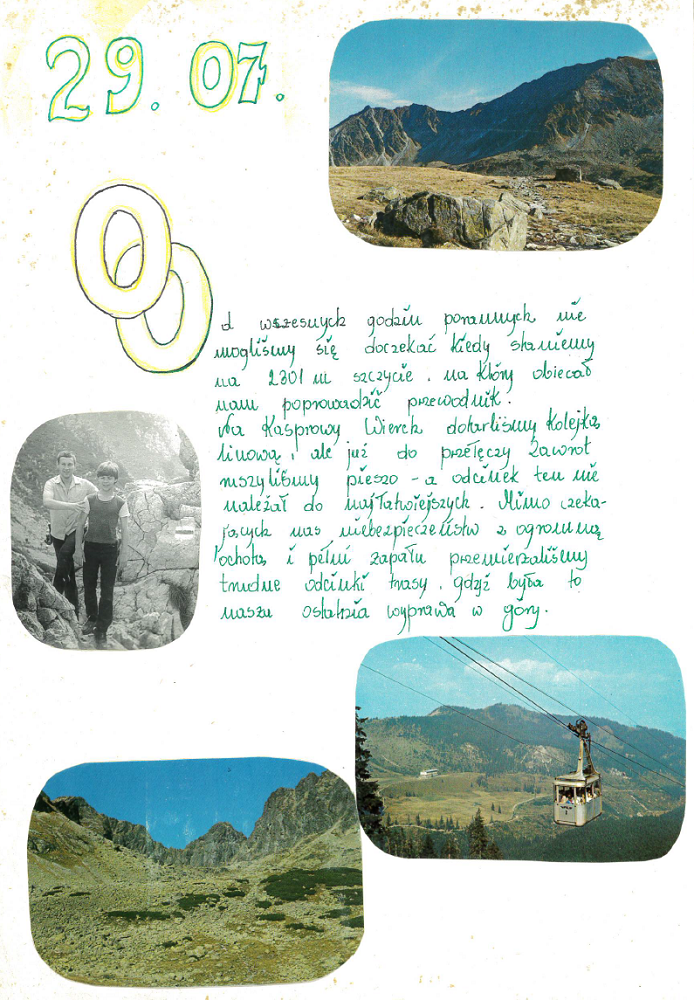 29. 07.
Od wszesnych godzin porannych nie
mogliśmy się doczekać kiedy staniemy
na 2301 m szczycie, na który obiecał
nam poprowadzić przewodnik.
Na Kasprowy Wierch dotarliśmy kolejką
linową, ale już do przełęczy Zawrat
ruszyliśmy pieszo - a odcinek ten nie
należał do najłatwiejszych. Mimo czeka-
jących nas niebezpieczeństw z ogromną
ochotą i pełni zapału przemierzaliśmy
trudne odcinki trasy, gdyż była to
nasza ostatnia wyprawa w góry.